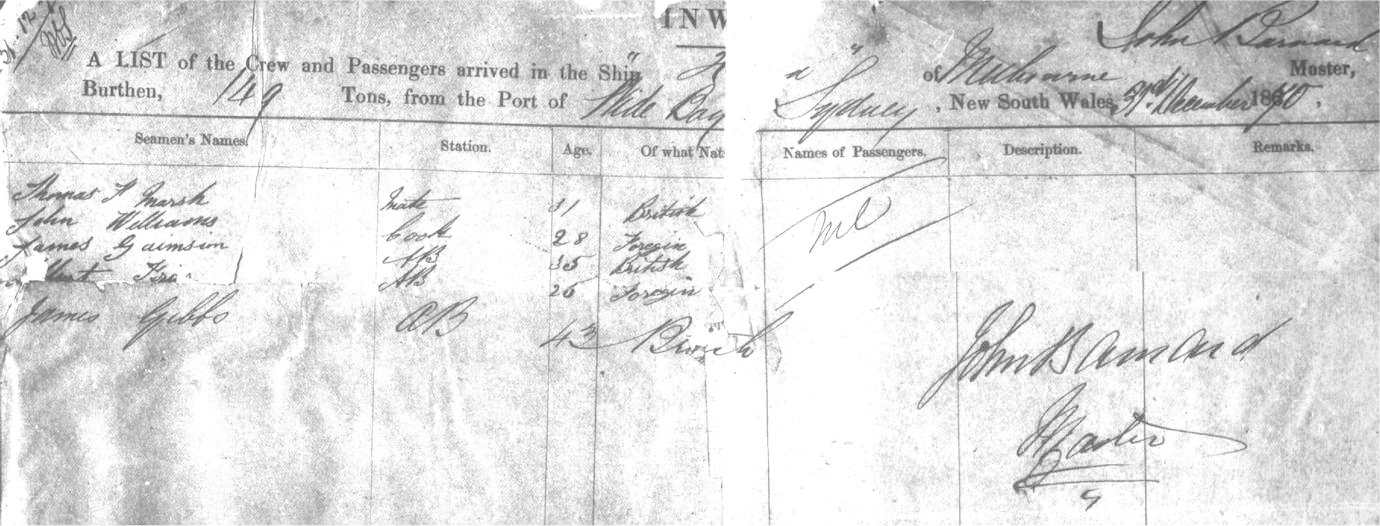 31.12.
INW
John Barnard
A LIST of the Crew and Passengers arrived in the Ship " " of Melbourne Master,
Burthen, 149 Tons, from the Port of Wide Bay Sydney, New South Wales, 31st December 1870,
Seamen's Names. Station. Age. Of what Nat Names of Passengers. Description. Remarks.
Thomas P Marsh Mate 31 British Nil
John Williams Cook 28 Foregin
James AB 35 British
AB 26 Foregin
James Gibbs AB 43 British
John Barnard
Master